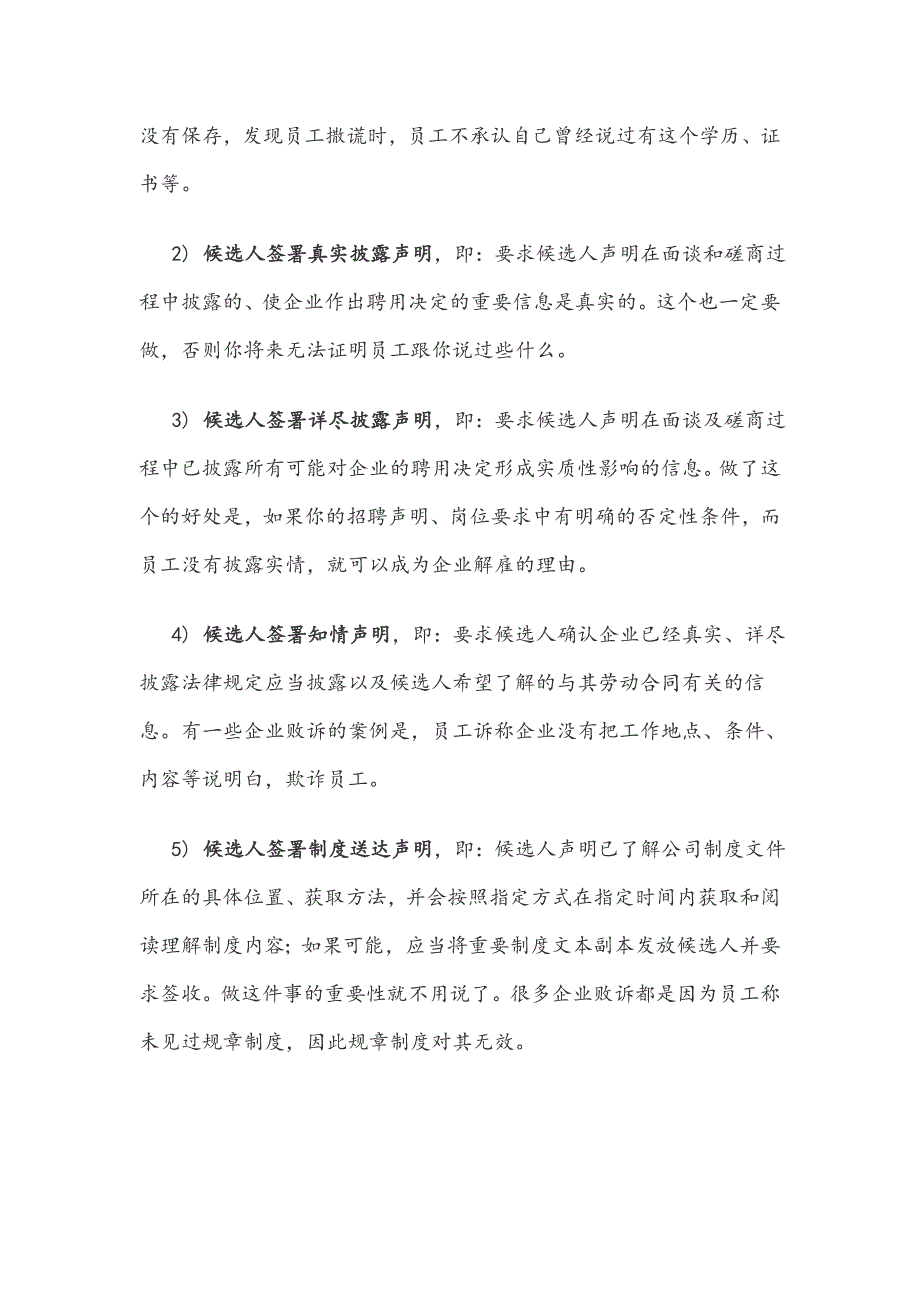 没有保存，发现员工撒谎时，员工不承认自己曾经说过有这个学历、证
书等。
2）候选人签署真实披露声明，即：要求候选人声明在面谈和磋商过
程中披露的、使企业作出聘用决定的重要信息是真实的。这个也一定要
做，否则你将来无法证明员工跟你说过些什么。
3）候选人签署详尽披露声明，即：要求候选人声明在面谈及磋商过
程中已披露所有可能对企业的聘用决定形成实质性影响的信息。做了这
个的好处是，如果你的招聘声明、岗位要求中有明确的否定性条件，而
员工没有披露实情，就可以成为企业解雇的理由。
4）候选人签署知情声明，即：要求候选人确认企业已经真实、详尽
披露法律规定应当披露以及候选人希望了解的与其劳动合同有关的信
息。有一些企业败诉的案例是，员工诉称企业没有把工作地点、条件、
内容等说明白，欺诈员工。
5）候选人签署制度送达声明，即：候选人声明已了解公司制度文件
所在的具体位置、获取方法，并会按照指定方式在指定时间内获取和阅
读理解制度内容；如果可能，应当将重要制度文本副本发放候选人并要
求签收。做这件事的重要性就不用说了。很多企业败诉都是因为员工称
未见过规章制度，因此规章制度对其无效。